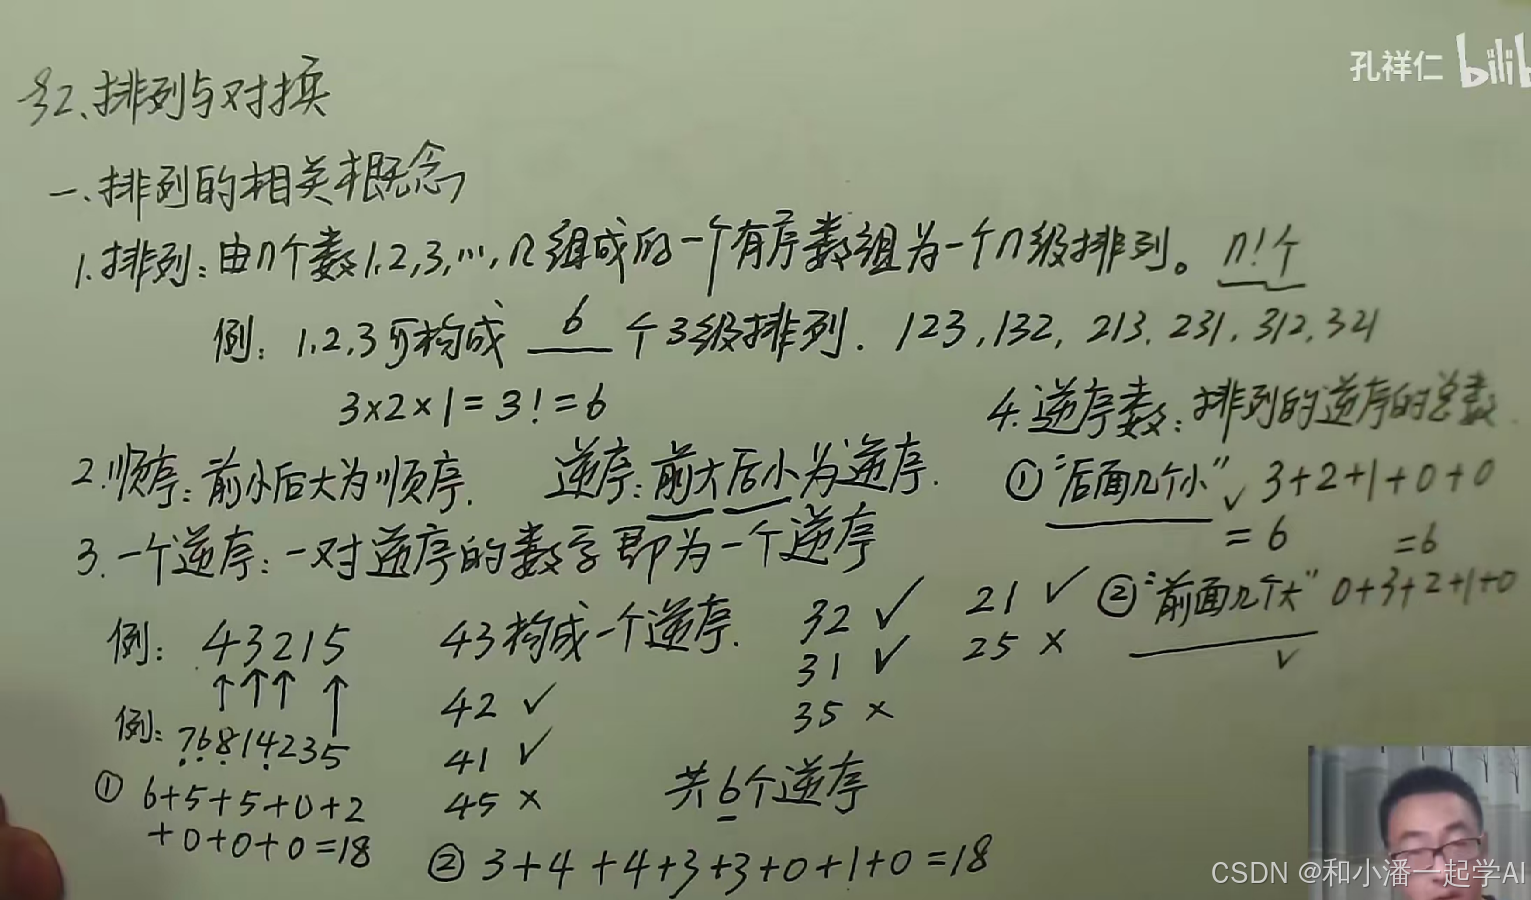 §2.排列与对换
一.排列的相关概念
1.排列：由n个数1,2,3,…,n组成的一个有序数组为一个n级排列。 n!个
例：1,2,3可构成 6 个3级排列. 123,132,213,231,312,321
3×2×1=3!=6
2.顺序：前小后大为顺序. 逆序：前大后小为逆序.
3.一个逆序：一对逆序的数字即为一个逆序
例：43215
43构成一个逆序.
42 ✓
41 ✓
45 ×
32 ✓
31 ✓
35 ×
21 ✓
25 ×
共6个逆序
4.逆序数：排列的逆序的总数.
①“后面几个小”✓ 3+2+1+0+0
=6
②“前面几个大” 0+3+2+1+0
=6
✓
例：76814235
① 6+5+5+0+2
+0+0+0=18
② 3+4+4+3+3+0+1+0=18
孔祥仁 bilib
CSDN @和小潘一起学AI